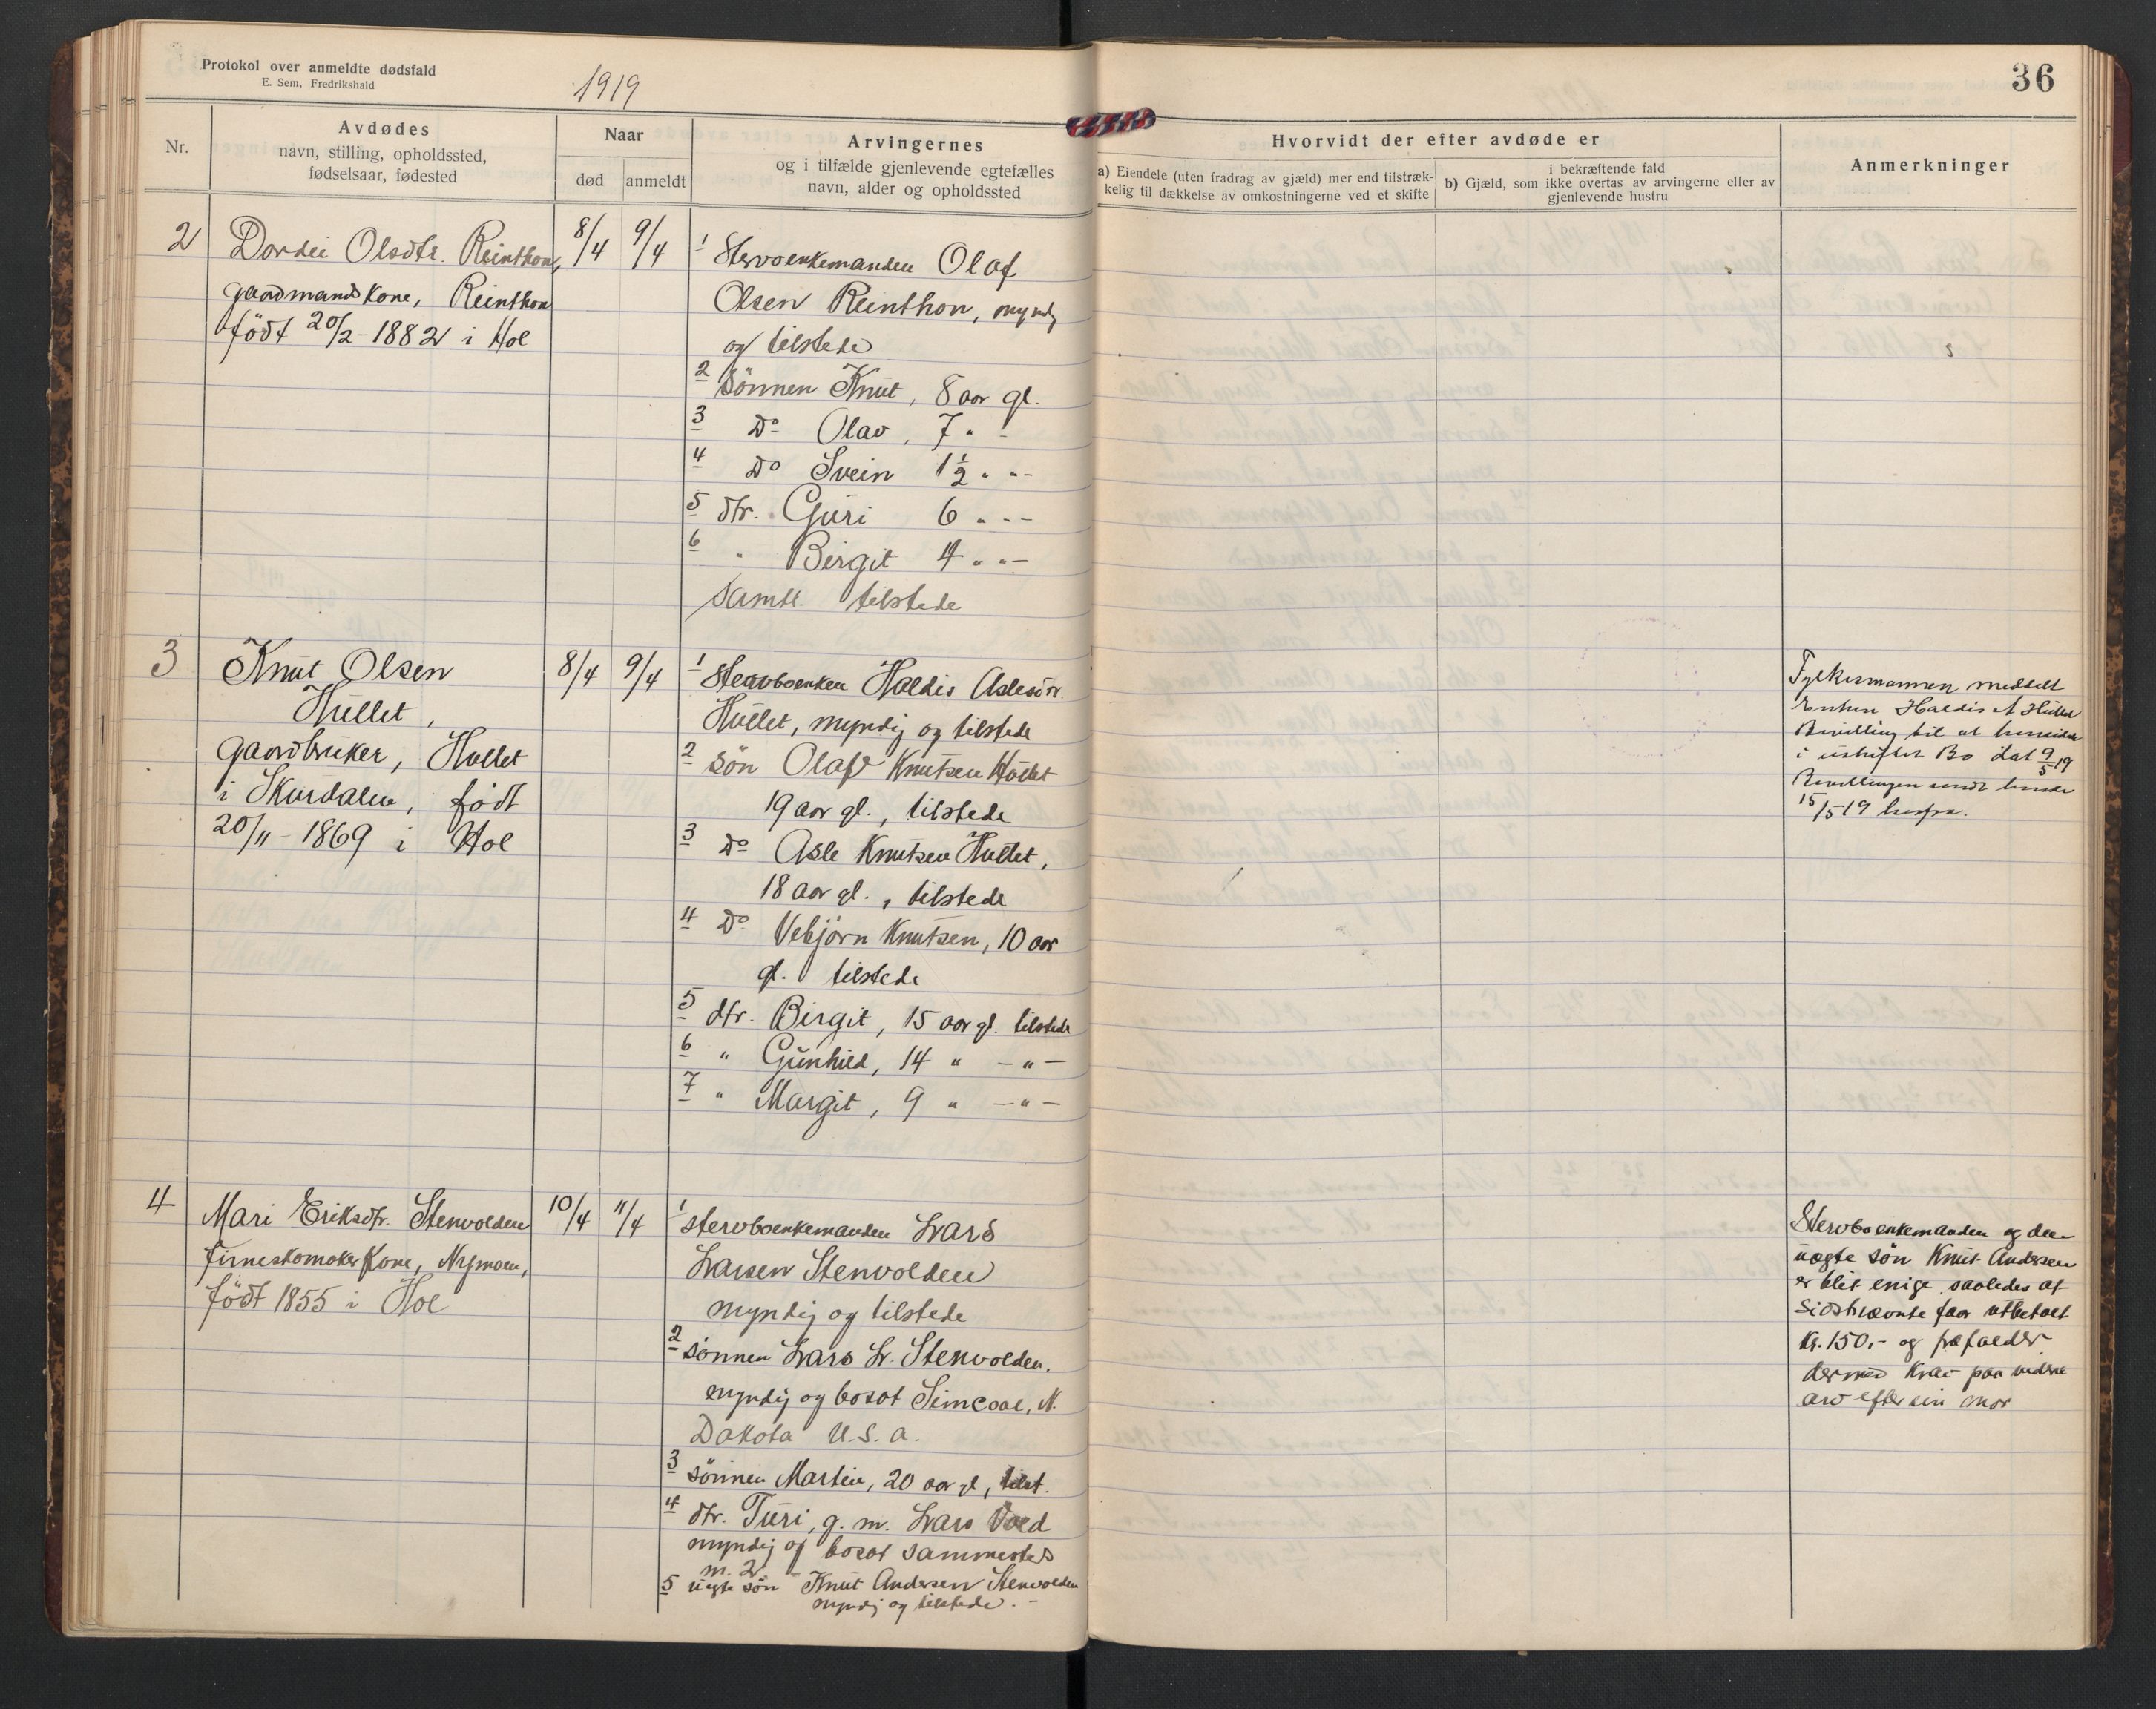 Protokol over anmeldte dødsfald
E. Sem, Fredrikshald
1919
36
Nr.
Avdødes
navn, stilling, opholdssted,
fødselsaar, fødested
Naar
død
anmeldt
Arvingernes
og i tilfælde gjenlevende egtefælles
navn, alder og opholdssted
Hvorvidt der efter avdøde er
a) Eiendele (uten fradrag av gjæld) mer end tilstræk-
kelig til dækkelse av omkostningerne ved et skifte
i bekræftende fald
b) Gjæld, som ikke overtas av arvingerne eller av
gjenlevende hustru
Anmerkninger
2 Dordei Olsdtr. Reinthon, 8/4 9/4
gaardmandskone, Reinthon
født 20/2-1882 i Hol
1 Stervoenkemanden Olaf
Olsen Reinthon, myndg
og tilstede
2 Sønnen Knut, 8 aar gl.
3 Do Olav, 7 " -
4 Do Svein 1 1/2 " " -
5 dtr. Guri 6 " - -
6 " Birgit 4 " " -
samtl. tilstede
3 Knut Olsen 8/4 9/4
Hullet,
gaardbruker, Hullet
i Skurdalen, født
20/11-1869 i Hol
1 Stervboenken Haldis Aslesdtr.
Hullet, myndig og tilstede
2 søn Olaf Knutsen Hullet
19 aar gl., tilstede
3 Do Asle Knutsen Hullet,
18 aar gl., tilstede
4 Do Vebjørn Knutsen, 10 aar
gl. tilstede
5 dtr. Birgit, 15 aar gl. tilstede
6 " Gunhild, 14 " - " -
7 " Margit, 9 " - " -
Fylkesmannen meddelt
Enken Haldis A Hullet
Bevilling til at hensidde
i uskiftet Bo dat 9/5 19
Bevillingen sendt
15/5 19 herfra.
4 Mari Eriksdtr. Stenvolden 10/4 11/4
kone, Nymoen,
født 1855 i Hol
1 stervboenkemanden Lars
Larsen Stenvolden
myndig og tilstede
2 sønnen Lars L. Stenvolden.
myndig og bosat Simcoal, N.
Dakota U.S.a.
3 sønnen Martin, 20 aar gl, tilst.
4 dtr. Turi, g. m. Lars
myndig og bosat sammesteds
m. 2
5 uegte søn Knut Andersen Stenvolden
myndig og tilstede. -
Stervboenkemanden og den
uegte søn Knut Andersen
er blit enige saaledes at
sidstnævnte faar utbetalt
kr. 150.- og frafalder
dermed krav paa videre
arv efter sin mor